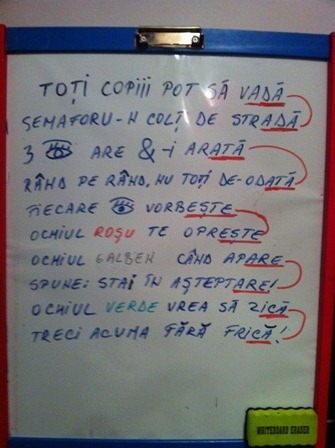 TOȚI COPIII POT SĂ VADĂ
SEMAFORU-N COLȚ DE STRADĂ
3 👁 ARE & -i ARATĂ
RÂND PE RÂND, NU TOȚI DE-ODATĂ
FIECARE 👁 VORBEȘTE
OCHIUL ROȘU TE OPREȘTE
OCHIUL GALBEN CÂND APARE
SPUNE: STAI ÎN AȘTEPTARE!
OCHIUL VERDE VREA SĂ ZICĂ
TRECI ACUMA FĂRĂ FRICĂ!
WHITEBOARD ERASER